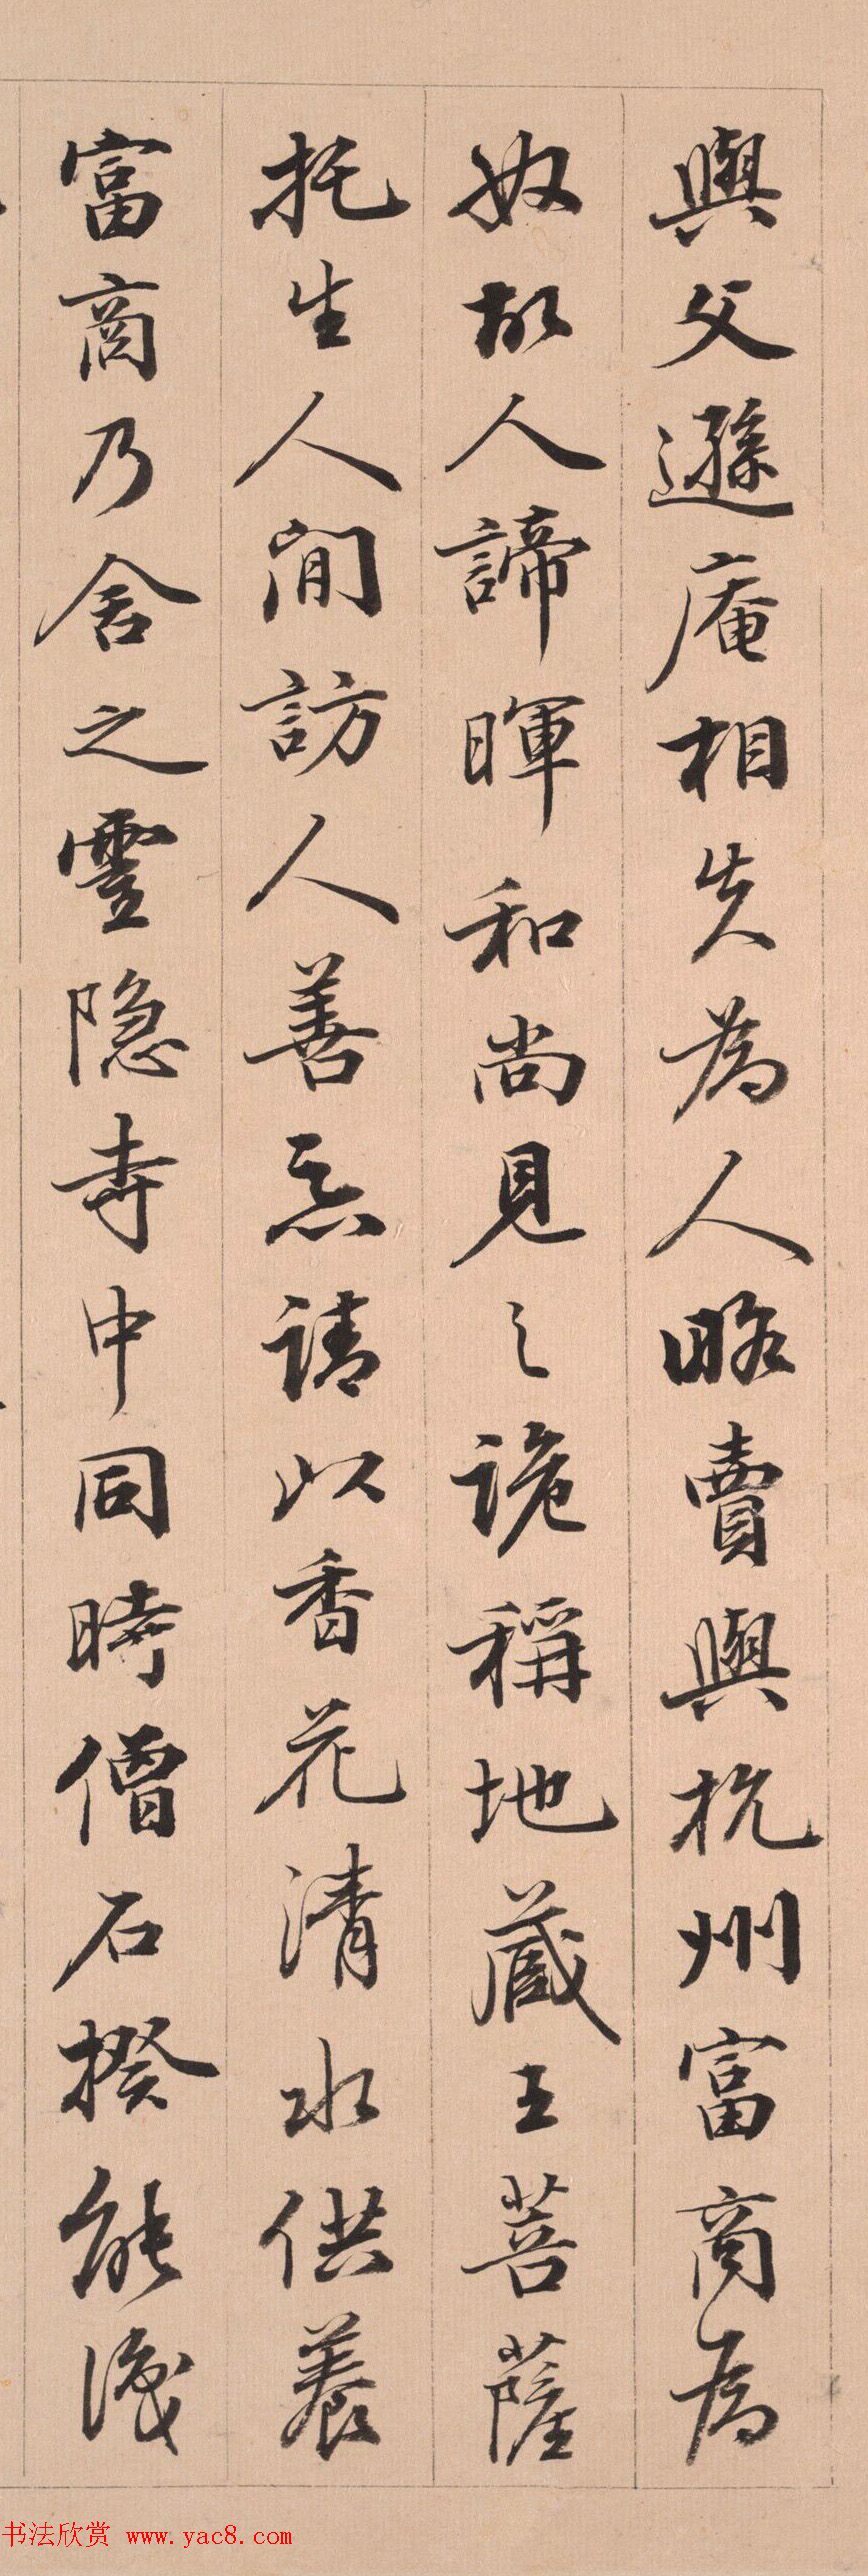 與父遜庵相失為人略賣與杭州富商為
奴故人諦暉和尚見之詭稱地藏王菩薩
托生人間訪人善惡請以香花清水供養
富商乃舍之靈隐寺中同時僧石揆能識
书法欣赏 www.yac8.com